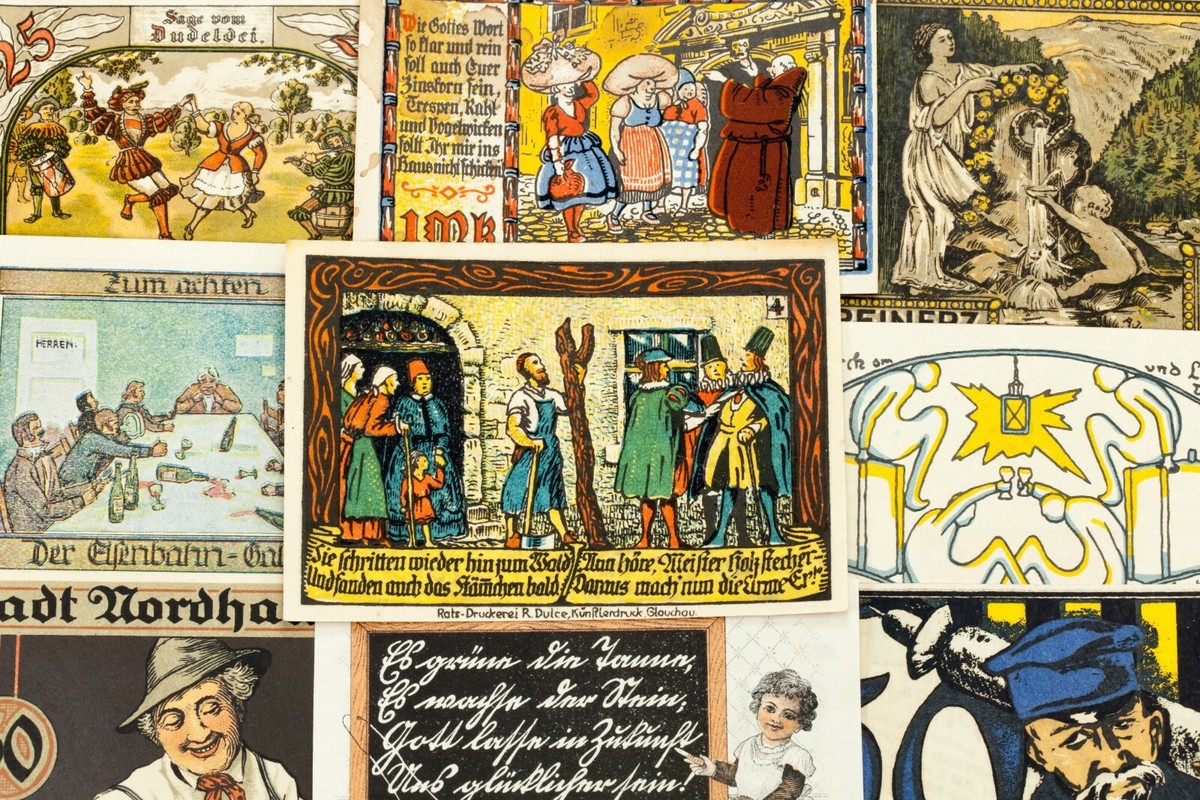 25
Sage vom
Dudeldei.
Wie Gottes Wort
so klar und rein
soll auch Euer
Zinskorn sein,
Trespen, Rahl
und Vogelwicken
sollt Ihr mir ins
Haus nicht schicken
1MK
REINERZ
Zum achten
HERREN.
Der Eisenbahn-Ga
4
Sie schritten wieder hin zum Wald
Und fanden auch das Stämmchen bald
Man höre, Meister Holzstecher
Daraus mach' nun die Arme Er!"
Rats-Druckerei R. Dulce, Künstlerdruck Glauchau.
und
adt Nordha
50
Es grüne die Tanne,
Es wachse der Stein;
Gott lasse in Zukunft
Uns glücklicher sein!
50